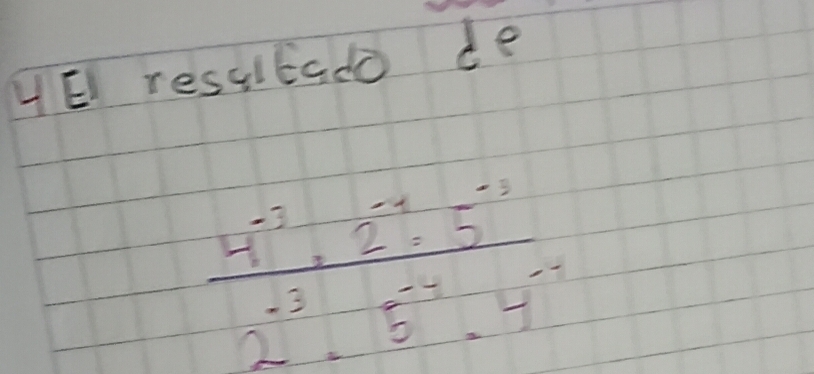 4 El resultado de
4⁻³ . 2⁻⁴ . 5⁻³
2⁻³ . 5⁻⁴ . 4⁻⁴